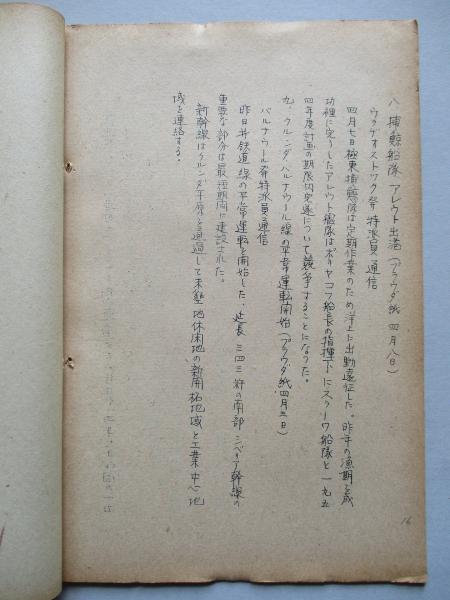 八、捕鯨船隊アレウト出港(プラウダ紙 四月八日)
ウラヂオストツク発特派員通信
四月七日極東捕鯨隊は定期作業のため洋上に出動遠征した。昨年の漁期を成
功裡に完了したアレウト艦隊はポリヤコフ船長の指揮下にスラーワ船隊と一九五
四年度計画の期限内完遂について競争することになつた。
九、クルンダ、バルナウール線の平常運転開始(プラウダ紙 四月 日)
バルナウール発特派員通信
昨日 鉄道線の平常運転を開始した。延長三四三粁の南部シベリア幹線の
重要な部分は最短期間に建設された。
新幹線はクルンダ平原を通過して未墾地休閑地の新開拓地域と工業中心地
域を連絡する。
16